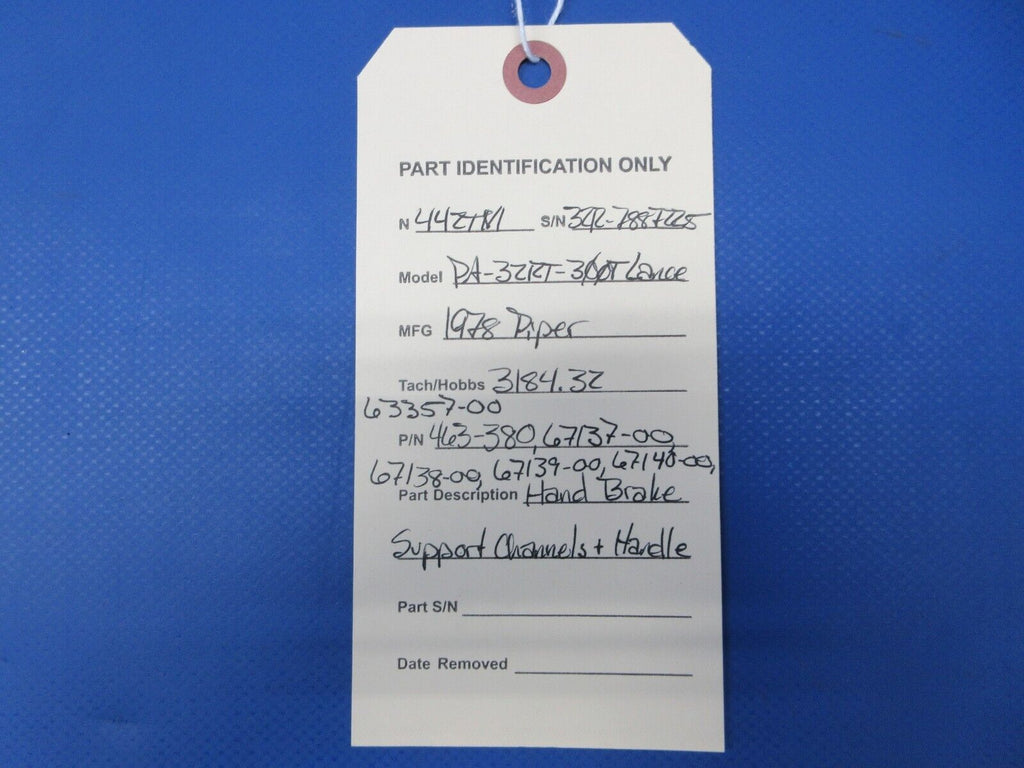 PART IDENTIFICATION ONLY
N 442TM S/N 32R-7887225
Model PA-32RT-300T Lance
MFG 1978 Piper
Tach/Hobbs 3184.32
63357-00
P/N 463-380, 67137-00,
67138-00, 67139-00, 67140-00,
Part Description Hand Brake
Support Channels + Handle
Part S/N
Date Removed